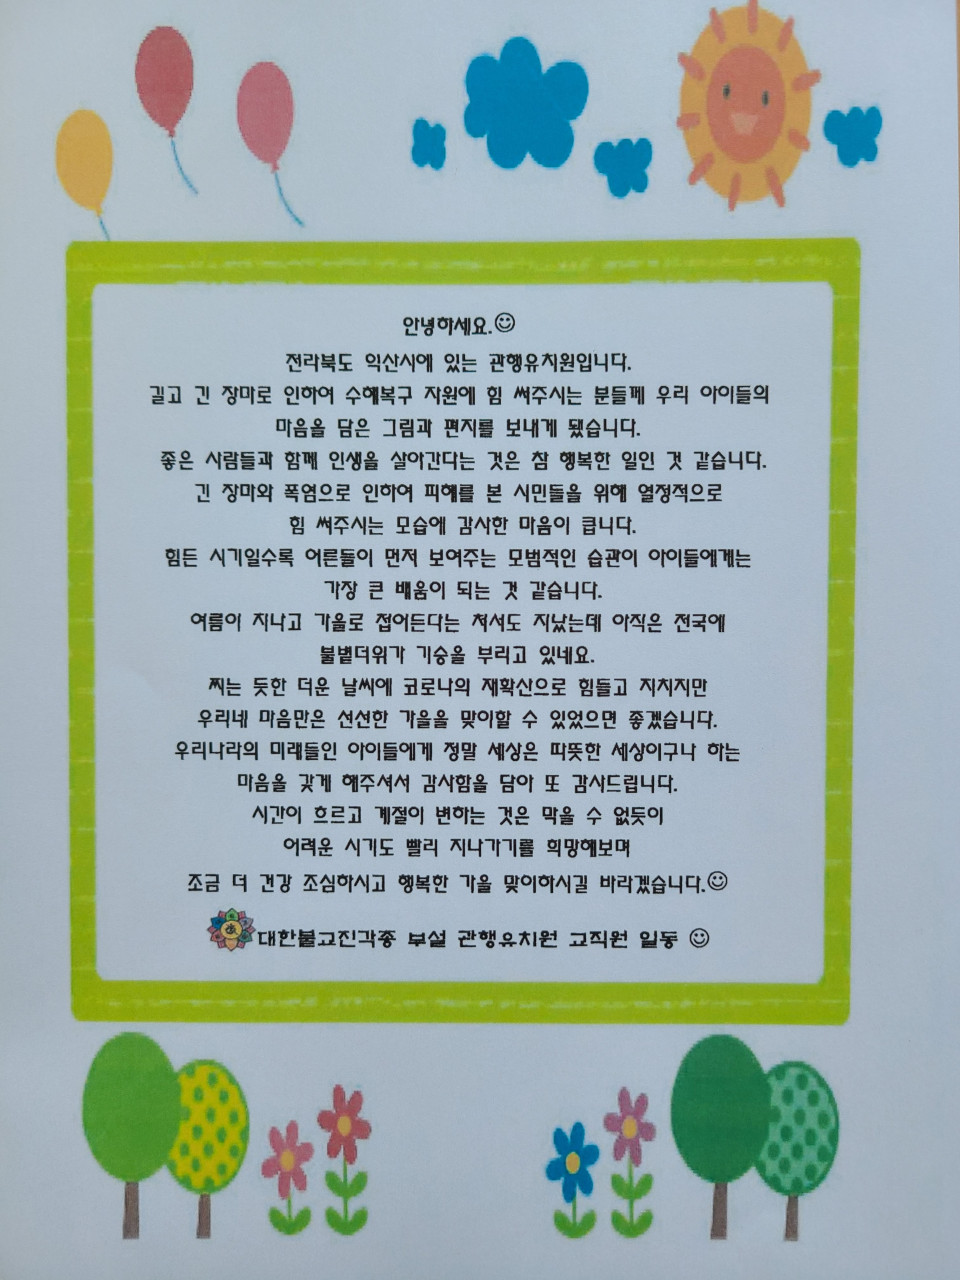 안녕하세요.☺
전라북도 익산시에 있는 관행유치원입니다.
길고 긴 장마로 인하여 수해복구 지원에 힘 써주시는 분들께 우리 아이들의
마음을 담은 그림과 편지를 보내게 됐습니다.
좋은 사람들과 함께 인생을 살아간다는 것은 참 행복한 일인 것 같습니다.
긴 장마와 폭염으로 인하여 피해를 본 시민들을 위해 열정적으로
힘 써주시는 모습에 감사한 마음이 큽니다.
힘든 시기일수록 어른들이 먼저 보여주는 모범적인 습관이 아이들에게는
가장 큰 배움이 되는 것 같습니다.
여름이 지나고 가을로 접어든다는 처서도 지났는데 아직은 전국에
불볕더위가 기승을 부리고 있네요.
찌는 듯한 더운 날씨에 코로나의 재확산으로 힘들고 지치지만
우리네 마음만은 선선한 가을을 맞이할 수 있었으면 좋겠습니다.
우리나라의 미래들인 아이들에게 정말 세상은 따뜻한 세상이구나 하는
마음을 갖게 해주셔서 감사함을 담아 또 감사드립니다.
시간이 흐르고 계절이 변하는 것은 막을 수 없듯이
어려운 시기도 빨리 지나가기를 희망해보며
조금 더 건강 조심하시고 행복한 가을 맞이하시길 바라겠습니다.☺
대한불교진각종 부설 관행유치원 교직원 일동 ☺